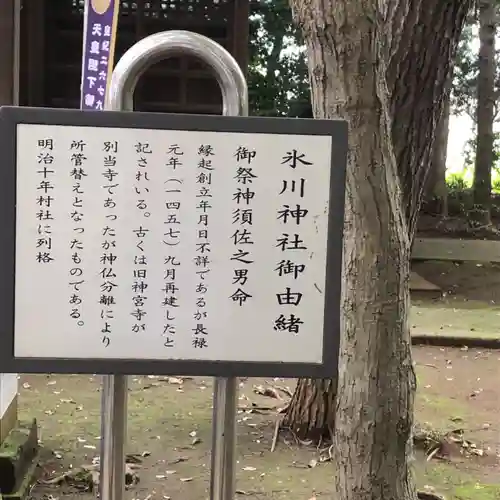 氷川神社御由緒
御祭神須佐之男命
縁起創立年月日不詳であるが長禄
元年(一四五七)九月再建したと
記されいる。古くは旧神宮寺が
別当寺であったが神仏分離により
所管替えとなったものである。
明治十年村社に列格
皇紀二六七九
天皇陛下御